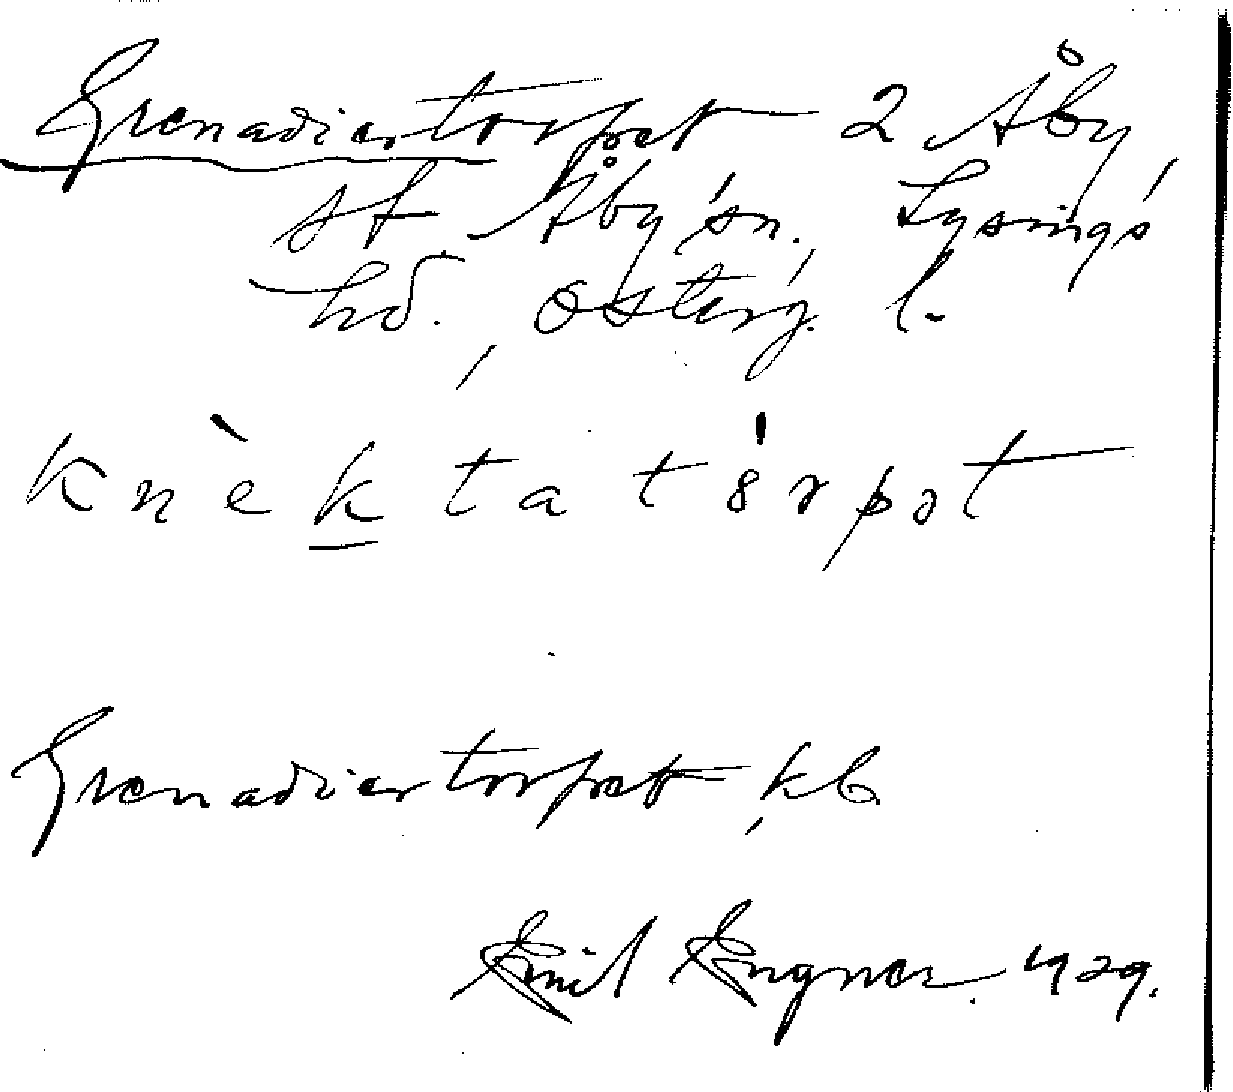 Grenadiertorpet 2 Åby,
st. Åby sn., Lysings
hd., Österg. l.
knèktatórpət
Grenadiertorpet, kb
Emil Engner. 1929.